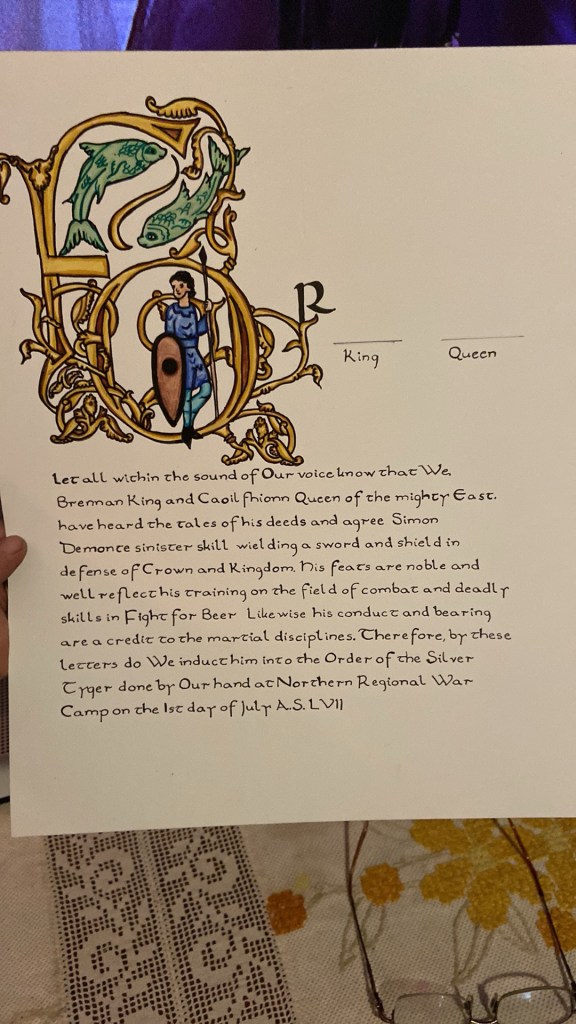 FOR
King Queen
Let all within the sound of Our voice know that We,
Brennan King and Caoilfhionn Queen of the mighty East.
have heard the tales of his deeds and agree Simon
Demonte sinister skill wielding a sword and shield in
defense of Crown and Kingdom. his feats are noble and
well reflect his training on the field of combat and deadly
skills in Fight for Beer Likewise his conduct and bearing
are a credit to the martial disciplines. Therefore, by these
letters do We induct him into the Order of the Silver
Tyger done by Our hand at Northern Regional War
Camp on the 1st day of July A.S. LVII